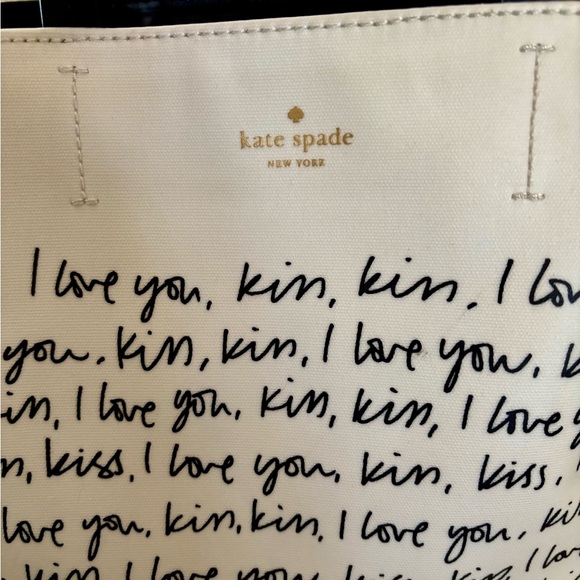 kate spade
NEW YORK
I love you, kiss, kiss, I lov
you, kiss, kiss, I love you, k
iss, I love you, kiss, kiss, I love y
s, kiss, I love you, kiss, kiss,
love you, kiss, kiss, I love you, ki
I love you, kiss I lov